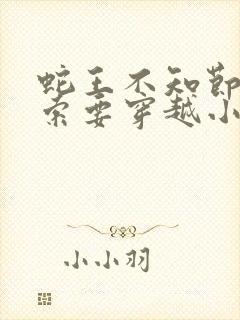 蛇王不知节
索要穿越小
小小羽